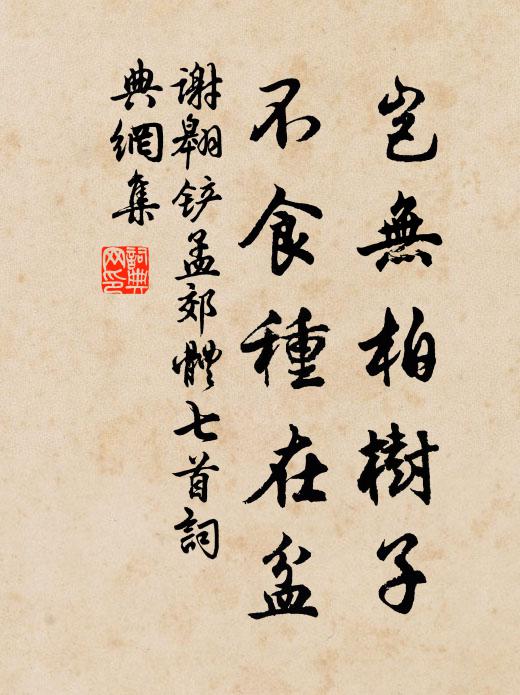 豈無柏樹子
不食種在盆
謝翱铲孟郊體七首詞
典網集
詞典
网印